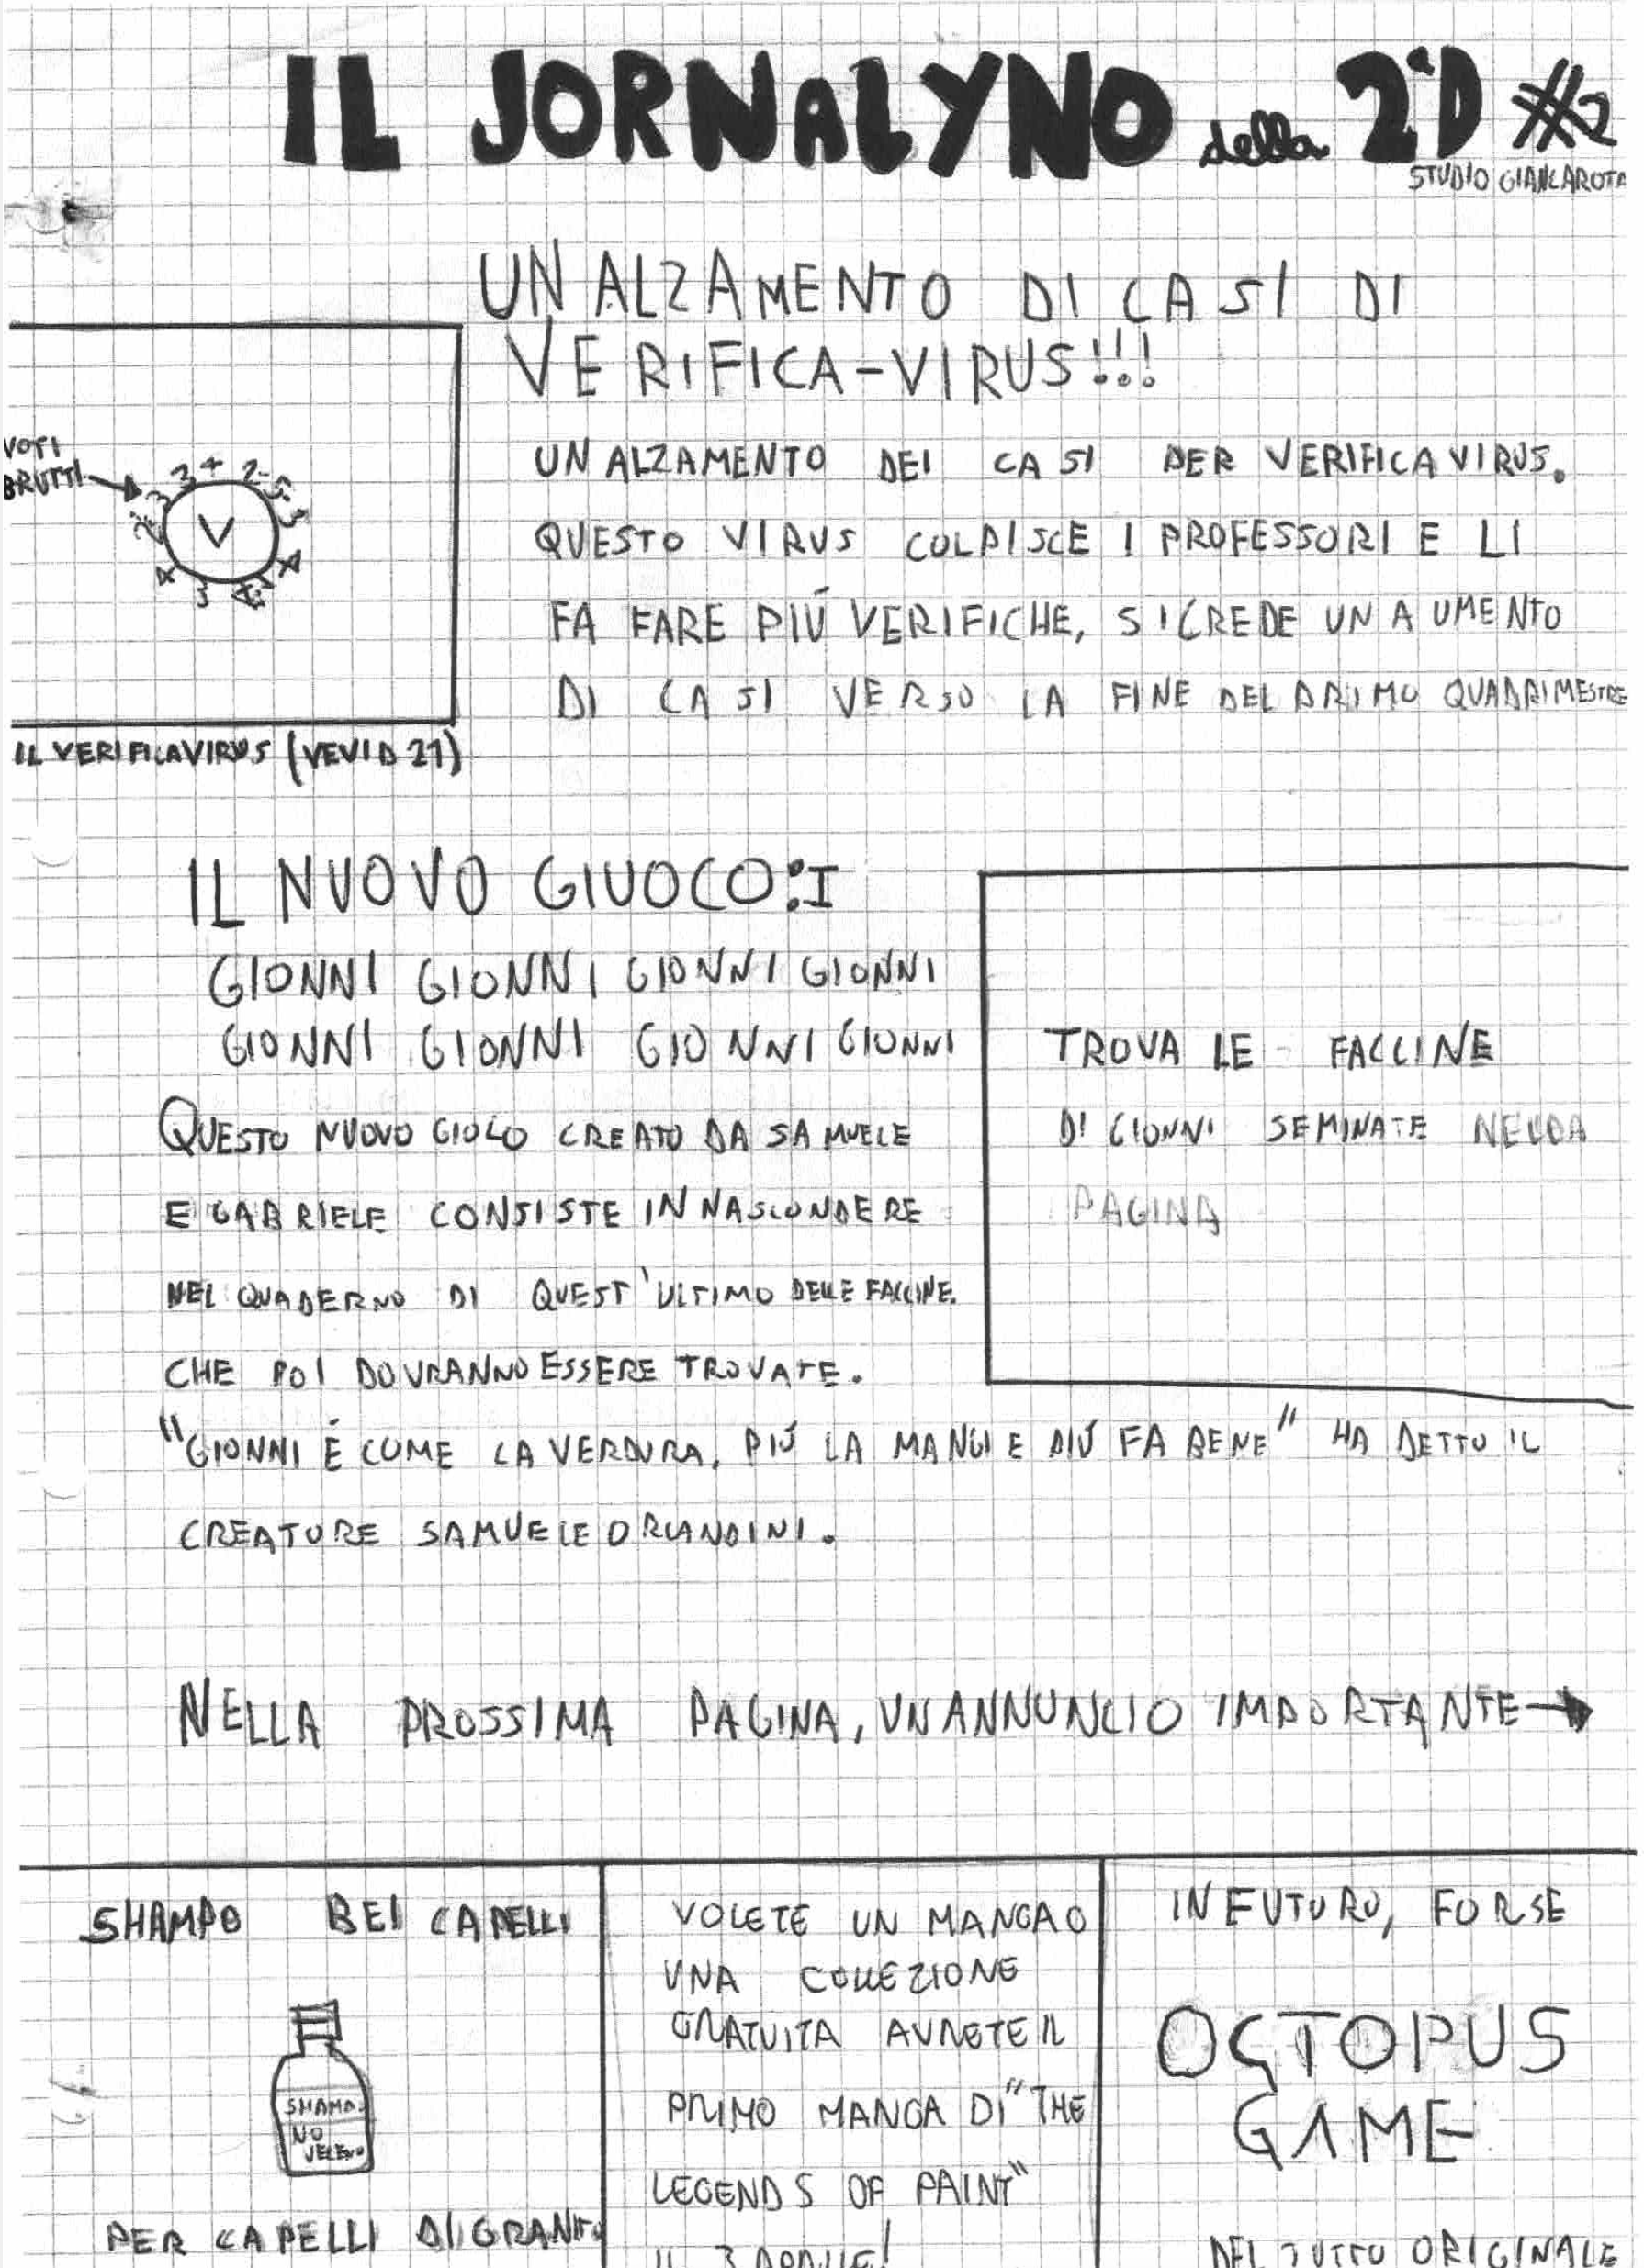 IL JORNALYNO della 2ªD #2
STUDIO GIANCAROTA
UN ALZAMENTO DI CASI DI
VERIFICA-VIRUS!!!
VOTI
BRUTTI
3 3+ 2- 5-
V
UN ALZAMENTO DEI CASI PER VERIFICAVIRUS.
QUESTO VIRUS COLPISCE I PROFESSORI E LI
FA FARE PIÚ VERIFICHE, SI CREDE UN AUMENTO
DI CASI VERSO LA FINE DEL PRIMO QUADRIMESTRE
IL VERIFICAVIRUS (VEVID 21)
IL NUOVO GIUOCO:I
GIONNI GIONNI GIONNI GIONNI
GIONNI GIONNI GIONNI GIONNI
QUESTO NUOVO GIOCO CREATO DA SAMUELE
E GABRIELE CONSISTE IN NASCONDERE
NEL QUADERNO DI QUEST'ULTIMO DELLE FACCINE.
CHE POI DOVRANNO ESSERE TROVATE.
"GIONNI É COME LA VERDURA, PIÚ LA MANGI E PIÚ FA BENE" HA DETTO IL
CREATORE SAMUELE ORLANDINI.
TROVA LE FACCINE
DI GIONNI SEMINATE NELLA
PAGINA
NELLA PROSSIMA PAGINA, UN ANNUNCIO IMPORTANTE→
SHAMPO BEI CAPELLI
SHAMPO
NO
VELENO
PER CAPELLI DI GRANITO
VOLETE UN MANGA O
UNA COLLEZIONE
GRATUITA AVRETE IL
PRIMO MANGA DI "THE
LEGENDS OF PAINT"
IL 3 APRILE!
IN FUTURO, FORSE
OCTOPUS
GAME
DEL TUTTO ORIGINALE